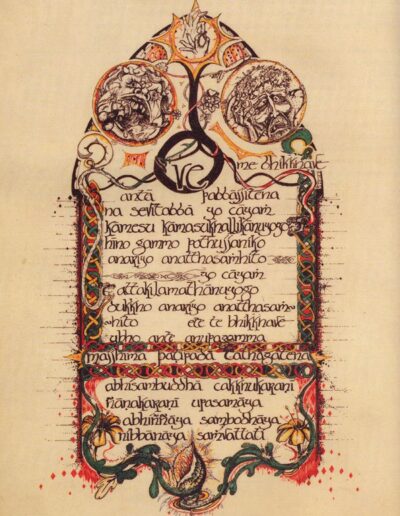 Dve me bhikkhave
antā pabbajitena
na sevitabbā yo cāyaṃ
kāmesu kāmasukhallikānuyogo
hīno gammo pothujjaniko
anariyo anatthasaṃhito
yo cāyaṃ
attakilamathānuyogo
dukkho anariyo anatthasaṃ
hito ete te bhikkhave
ubho ante anupagamma
majjhimā paṭipadā tathāgatena
abhisambuddhā cakkhukaraṇī
ñāṇakaraṇī upasamāya
abhiññāya sambodhāya
nibbānāya saṃvattati